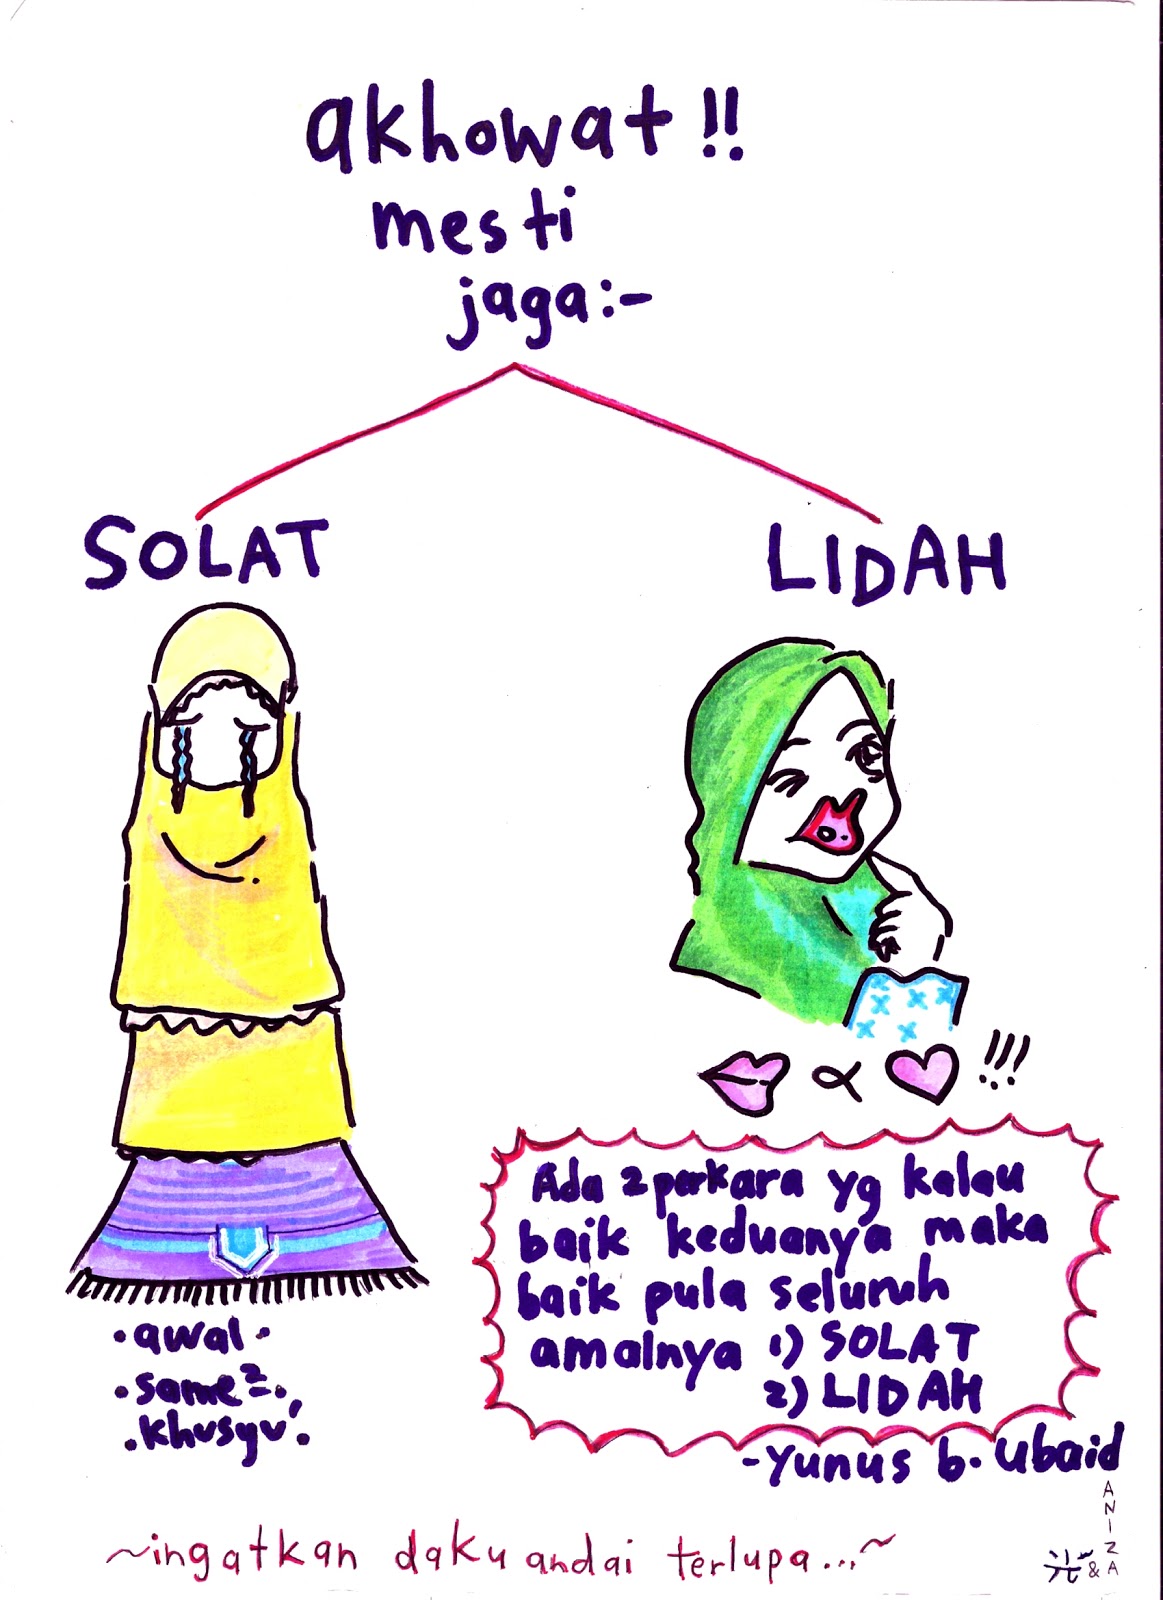 akhowat!!
mesti
jaga:-
SOLAT
LIDAH
∝ !!!
•awal•
•same²•
•khusyu'•
Ada 2 perkara yg kalau
baik keduanya maka
baik pula seluruh
amalnya 1) SOLAT
2) LIDAH
-Yunus b. Ubaid
~ingatkan daku andai terlupa...~
& ANIZA